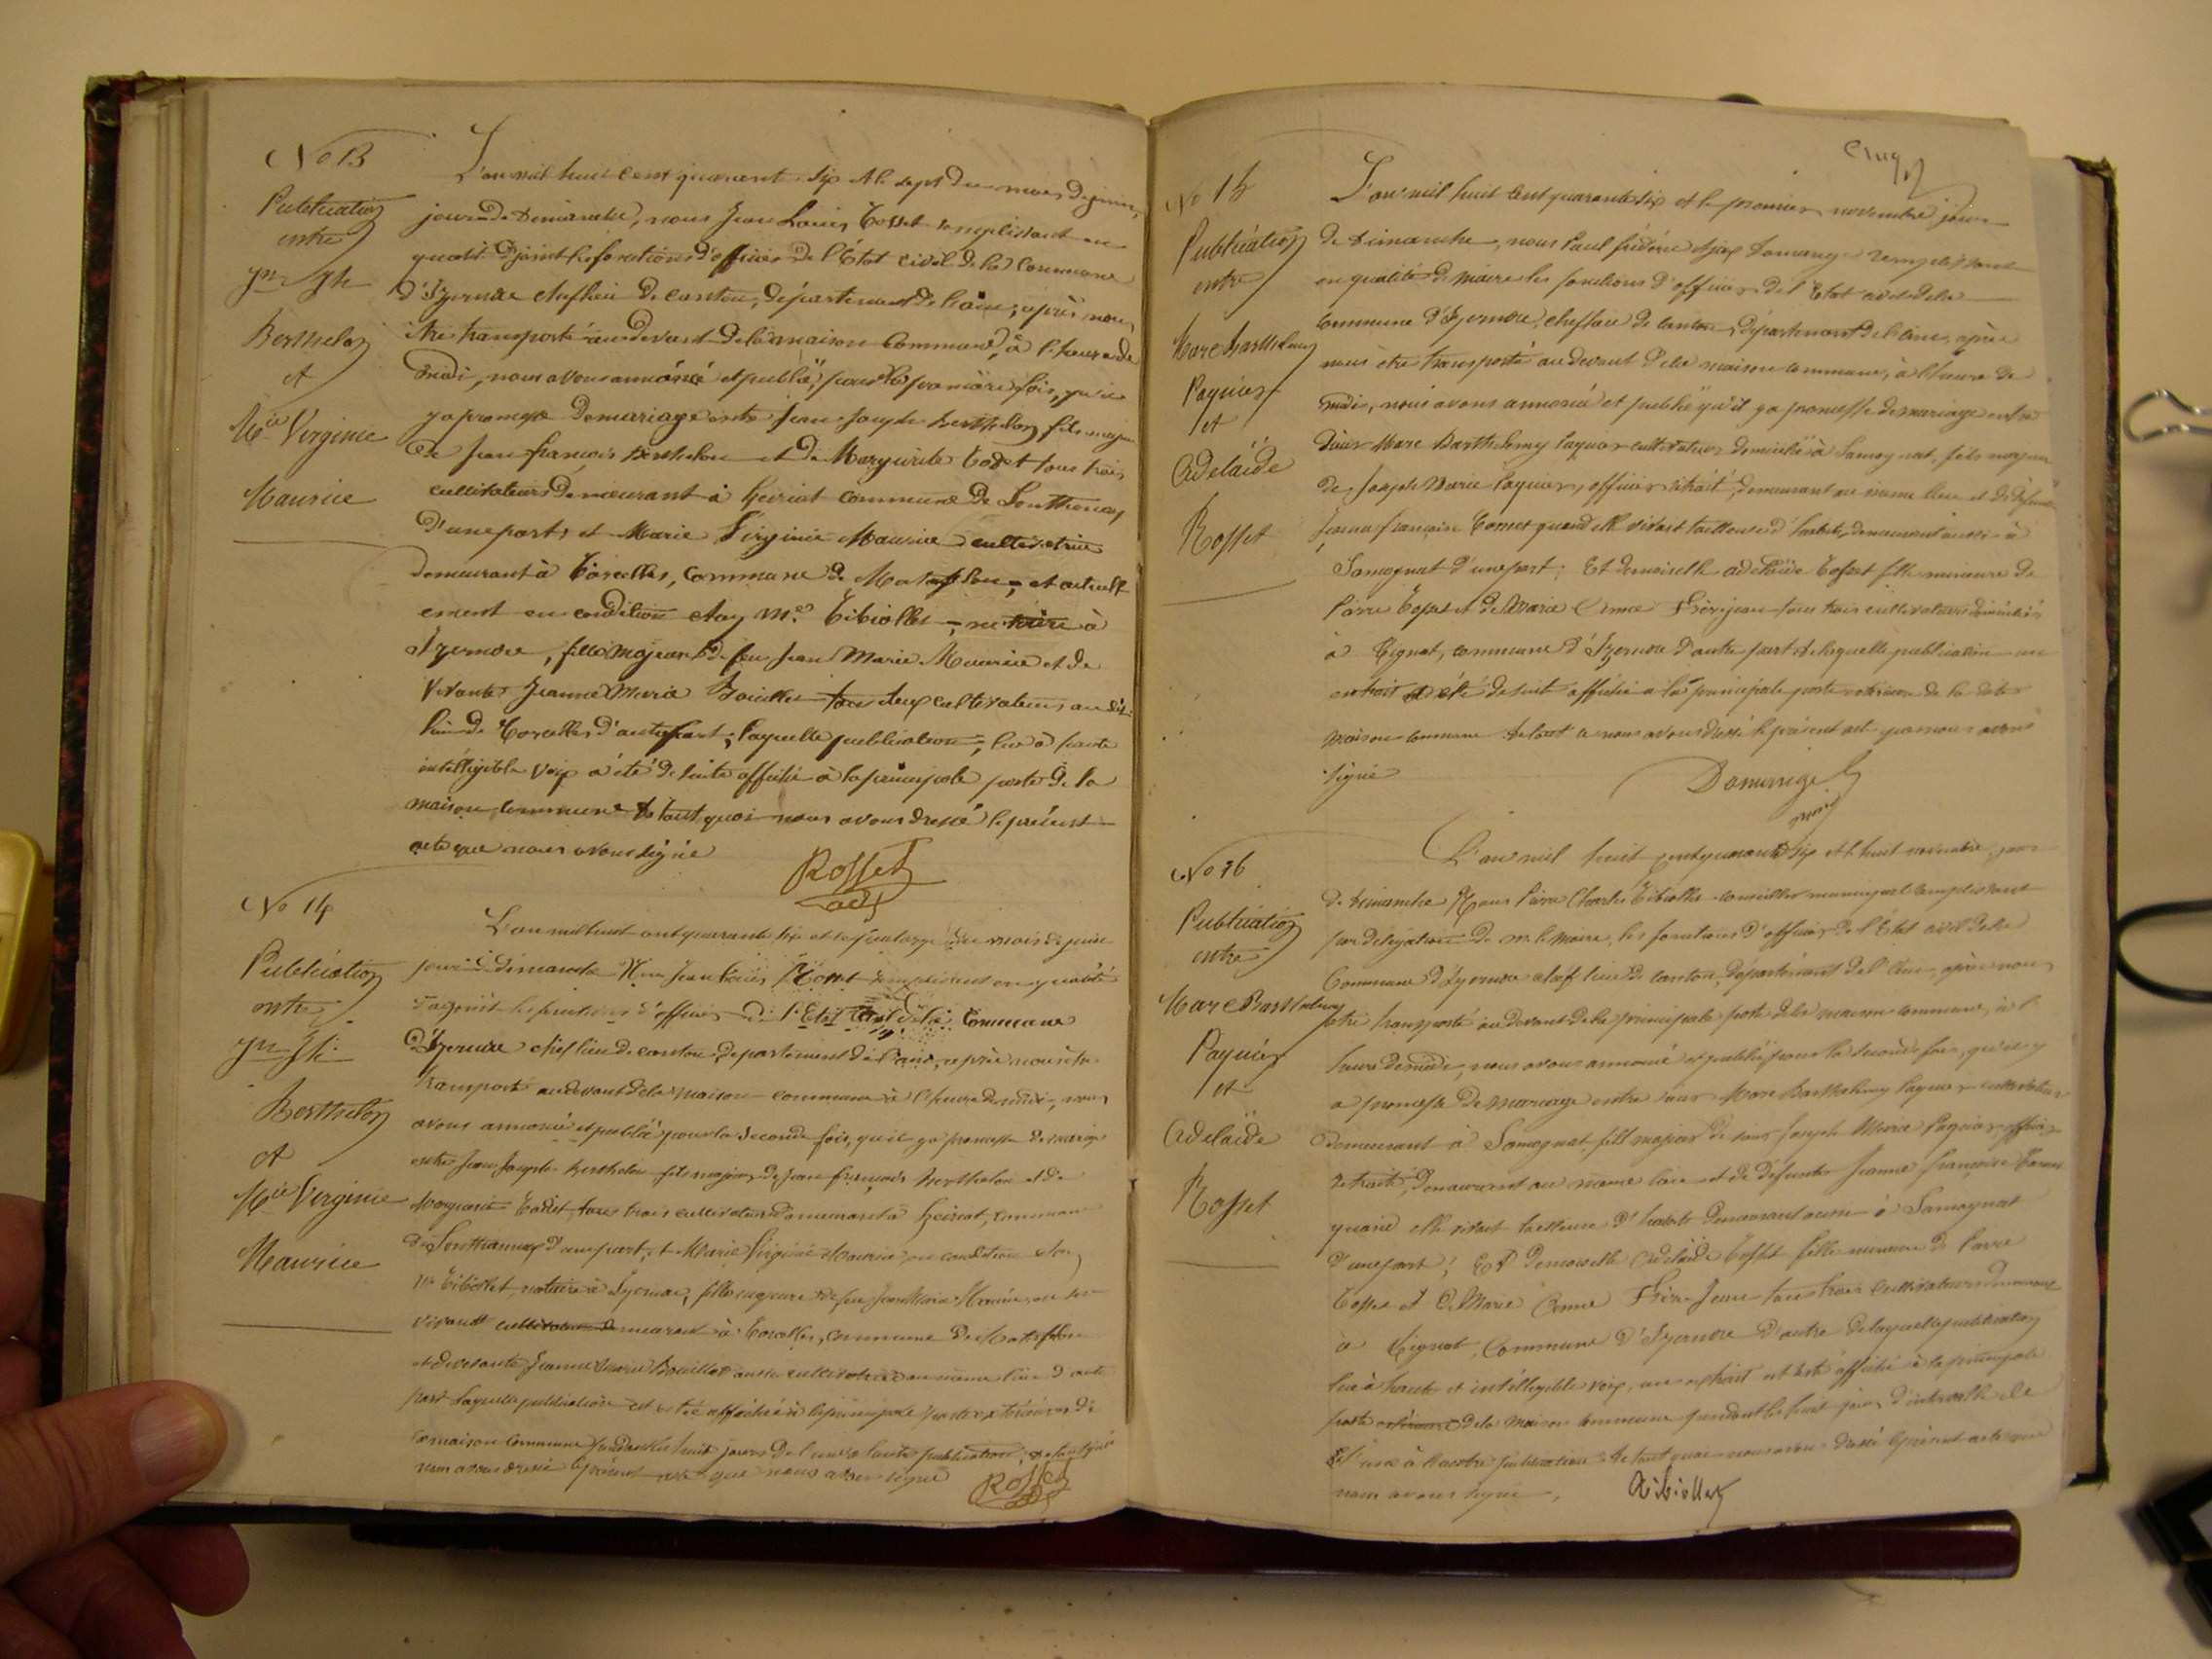 No 13
Publication
entre
Jn Jh
Berthelon
et
Mie Virginie
Maurice
L'an mil huit cent quarante six et le sept du mois de juin,
jour de Dimanche, nous Jean Louis Rosset remplissant en
qualité d'adjoint les fonctions d'officier de l'État civil de la Commune
d'Izernore chef lieu de canton, département de l'ain, après nous
être transporté au devant de la maison Commune, à l'heure de
midi, nous avons annoncé et publié, pour la première fois, qu'il
y a promesse de mariage entre Jean Joseph Berthelon fils majeur
de Jean françois Berthelon et de Marguerite Godet tous trois
cultivateurs demeurant à heiriat commune de Sonthonnax
d'une part, et Marie Virginie Maurice cultivatrice
demeurant à Corcelles, commune de Matafelon, et actuell
ement en condition chez Me Tibiollet, notaire à
Izernore, fille majeure de feu Jean Marie Maurice et de
vivante Jeanne Marie Bouillet tous deux cultivateurs au dit
lieu de Corcelles d'autre part; laquelle publication, lue à haute
intélligible voix a été de suite affichée à la principale porte de la
maison commune de tout quoi nous avons dressé le présent
acte que nous avons signé
Rosset
adj
No 14
Publication
entre
Jn Jh
Berthelon
et
Mie Virginie
Maurice
L'an mil huit cent quarante six et le quatorze du mois de juin
jour de dimanche Nous Jean Louis Rosset remplissant en qualité
d'agoint les fonctions d'officier de l'Etat Civil de la Commune
d'Izernore chef lieu de canton, département de l'ain, après nous être
transporté au devant de la maison commune à l'heure de midi, nous
avons annoncé et publié pour la seconde fois, qu'il y a promesse de mariage
entre Jean Joseph Berthelon fils majeur de Jean françois Berthelon et de
Marguerite Godet tous trois cultivateurs demeurant à heiriat, commune
de Sonthonnax d'une part, et Marie Virginie Maurice en condition chez
Me Tibiollet notaire à Izernore, fille majeure de feu Jean Marie Maurice en son
vivant cultivateur demeurant à Corcelles, commune de Matafelon
et de vivante Jeanne Marie Bouillet aussi cultivatrice au même lieu d'autre
part laquelle publication a été affichée à la principale porte extérieure de
la maison commune pendant les huit jours de l'une à l'autre publication; de tout quoi
nous avons dressé le présent acte que nous avons signé
Rosset
adj
cinq
No 15
Publication
entre
Marc Barthelemy
Paquier
et
Adelaïde
Rosset
L'an mil huit cent quarante six et le premier novembre jour
de Dimanche, nous Paul frédéric Domange remplissant
en qualité de maire les fonctions d'officier de l'Etat civil de la
commune d'Izernore, chef lieu de canton, département de l'ain, après
nous être transporté au devant de la maison commune, à l'heure de
midi, nous avons annoncé et publié qu'il y a promesse de mariage entre
sieur Marc Barthelemy Paquier cultivateur domicilié à Samognat, fils majeur
de Joseph Marie Paquier, officier retraité, demeurant au même lieu et de défunte
Jeanne françoise quand elle vivait tailleuse d'habits, demeurant aussi à
Samognat d'une part; Et demoiselle adelaïde Rosset fille mineure de
Pierre Rosset et de Marie Anne Frèrejean tous trois cultivateurs domiciliés
à Tignat, commune d'Izernore d'autre part de laquelle publication un
extrait a été de suite affiché à la principale porte extérieure de la dite
maison commune de tout ce nous avons dressé le présent acte que nous avons
signé
Domange
maire
No 16
Publication
entre
Marc Barthelemy
Paquier
et
Adelaïde
Rosset
L'an mil huit cent quarante six et le huit novembre, jour
de dimanche Nous Pierre Charles Tibiollet conseiller municipal remplissant
par délégation de m. le maire, les fonctions d'officier de l'État civil de la
Commune d'Izernore chef lieu de canton, département de l'Ain, après nous
être transporté au devant de la principale porte de la maison commune, à l'
heure de midi, nous avons annoncé et publié pour la seconde fois, qu'il y
a promesse de mariage entre sieur Marc Barthelemy Paquier cultivateur
demeurant à Samognat, fils majeur de sieur Joseph Marie Paquier, officier
retraité, demeurant au même lieu et de défunte Jeanne françoise
quand elle vivait tailleuse d'habits demeurant aussi à Samognat
d'une part; Et demoiselle Adelaïde Rosset fille mineure de Pierre
Rosset et de Marie Anne Frère Jean tous trois cultivateurs demeurant
à Tignat, Commune d'Izernore d'autre de laquelle publication
lue à haute et intélligible voix, un extrait a été affiché à la principale
porte extérieure de la maison commune pendant les huit jours d'intervalle de
l'une à l'autre publication De tout quoi nous avons dressé le présent acte que
nous avons signé.
Tibiollet